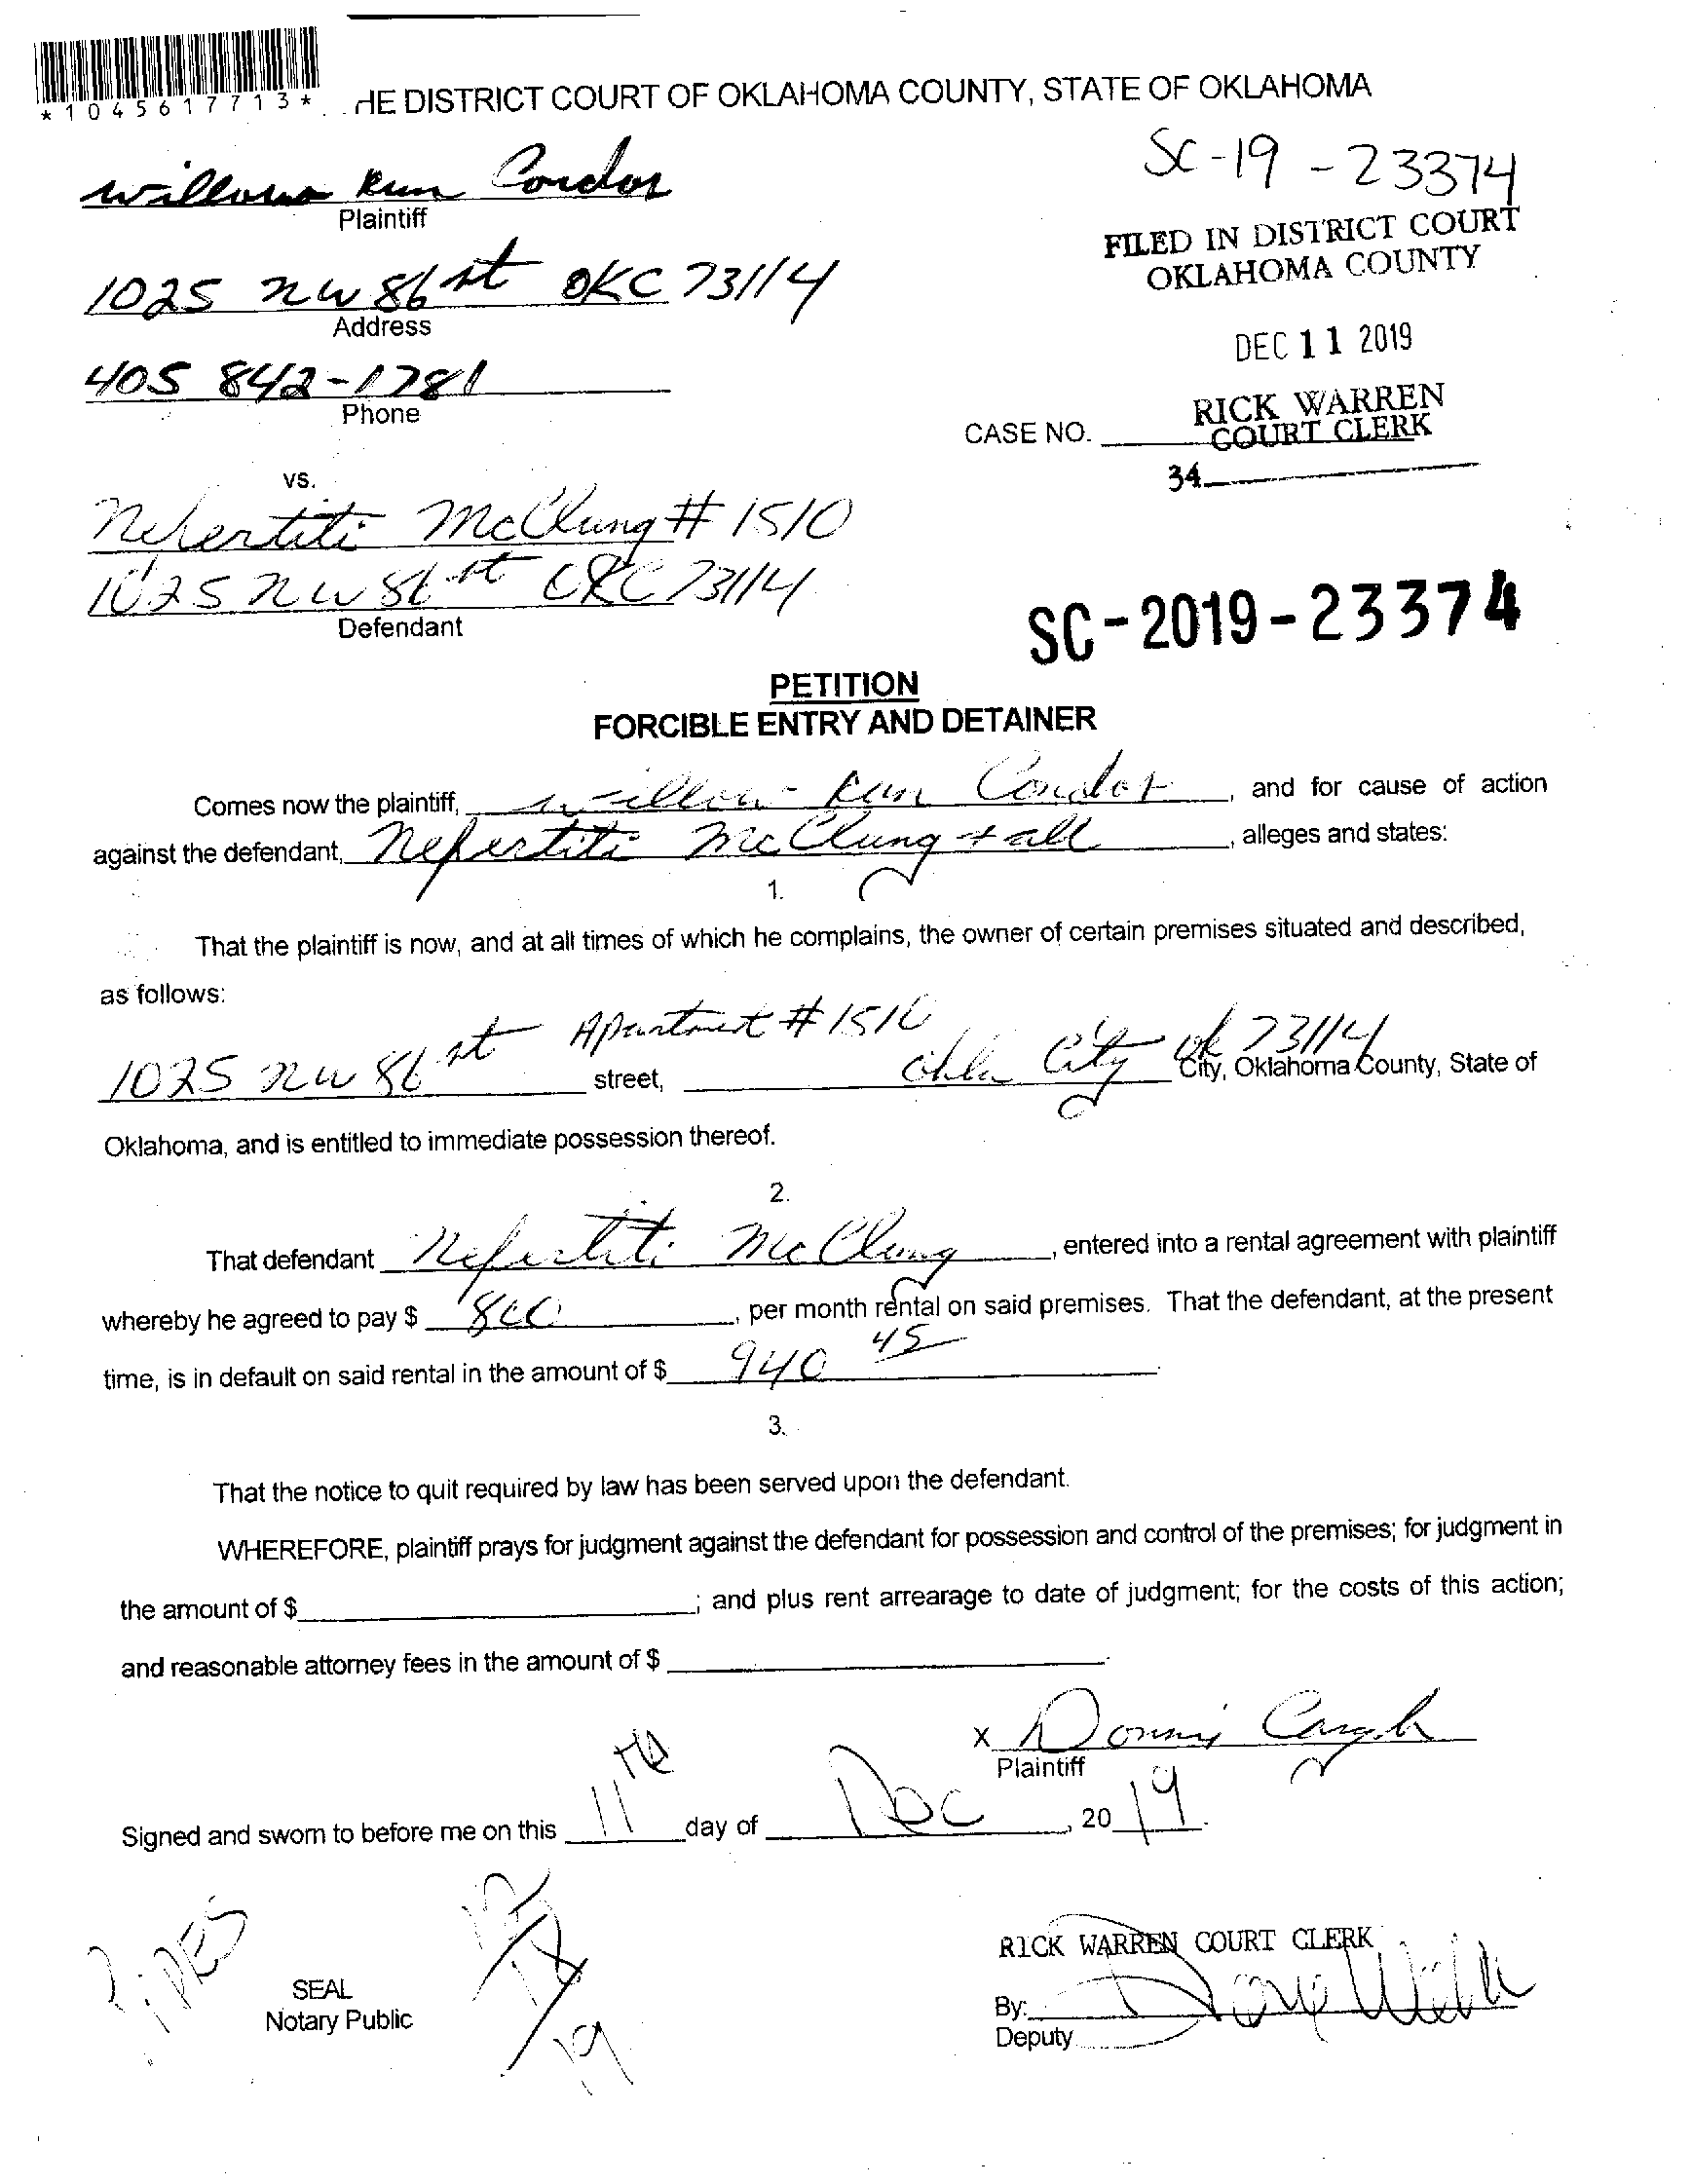 *1045617713*
HE DISTRICT COURT OF OKLAHOMA COUNTY, STATE OF OKLAHOMA
SC-19-23374
Willow Run Condos
Plaintiff
FILED IN DISTRICT COURT
OKLAHOMA COUNTY
1025 NW 86 st OKC 73114
Address
DEC 11 2019
405 842-1781
Phone
RICK WARREN
CASE NO. COURT CLERK
34
vs.
Nefertiti McClung # 1510
1025 NW 86 st OKC 73114
Defendant
SC-2019-23374
PETITION
FORCIBLE ENTRY AND DETAINER
Comes now the plaintiff, Willow Run Condos, and for cause of action
against the defendant, Nefertiti McClung + all, alleges and states:
1.
That the plaintiff is now, and at all times of which he complains, the owner of certain premises situated and described,
as follows:
1025 NW 86 st Apartment # 1510 street, Okla City ok 73114 City, Oklahoma County, State of
Oklahoma, and is entitled to immediate possession thereof.
2.
That defendant Nefertiti McClung, entered into a rental agreement with plaintiff
whereby he agreed to pay $ 800, per month rental on said premises. That the defendant, at the present
time, is in default on said rental in the amount of $ 940 45.
3.
That the notice to quit required by law has been served upon the defendant.
WHEREFORE, plaintiff prays for judgment against the defendant for possession and control of the premises; for judgment in
the amount of $ ; and plus rent arrearage to date of judgment; for the costs of this action;
and reasonable attorney fees in the amount of $ .
X
Plaintiff
Signed and sworn to before me on this 11th day of Dec, 2019.
PIPES
12/18/19
SEAL
Notary Public
RICK WARREN COURT CLERK
By:
Deputy